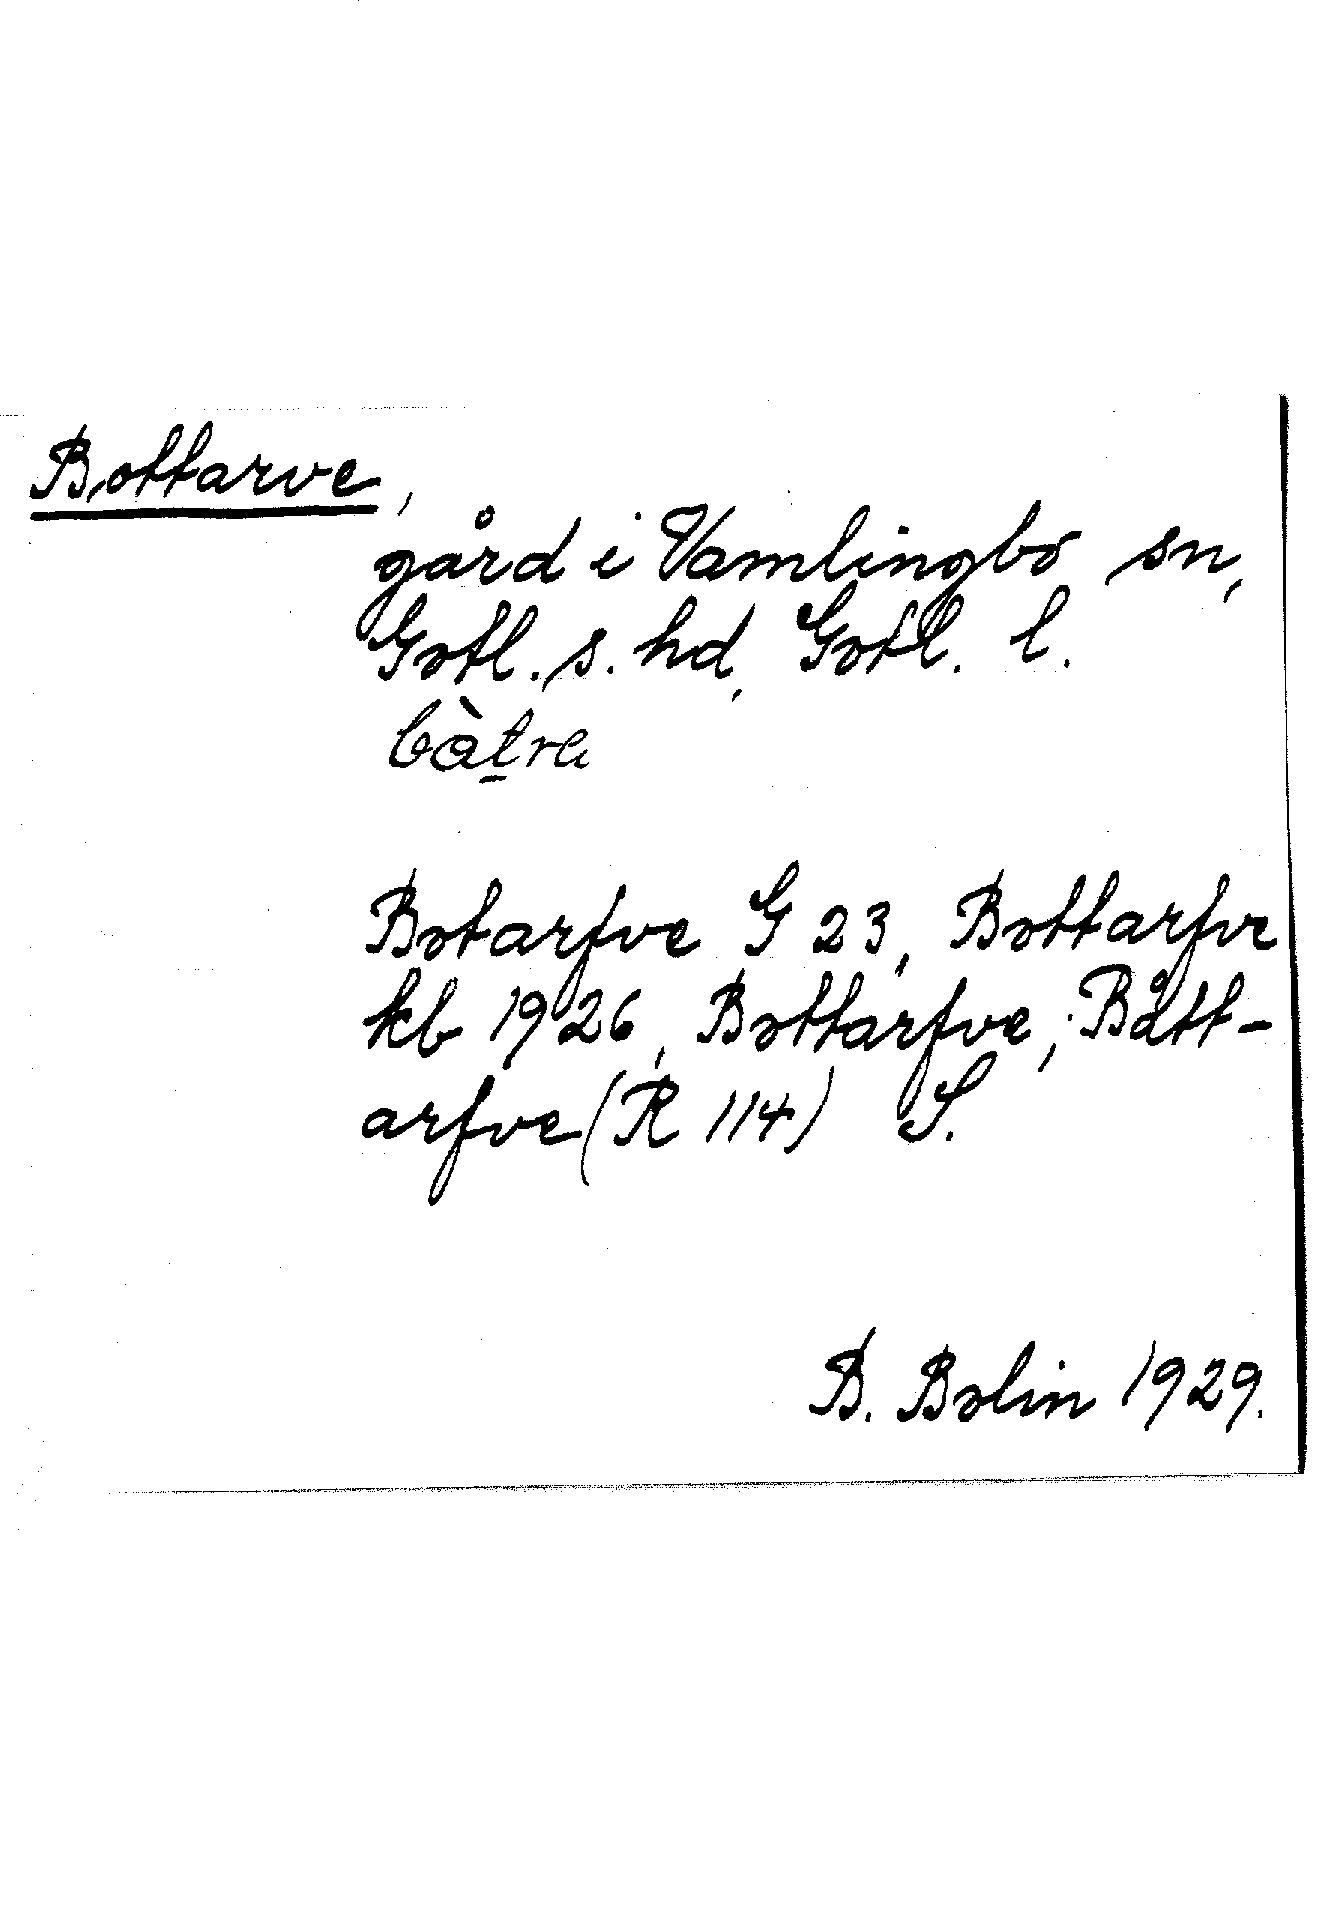 Bottarve,
gård i Vamlingbo sn,
Gotl. s. hd, Gotl. l.
bàt̲ra
Botarfve G 23, Bottarfve
kb 1926, Bottarfve, Bått-
arfve (R 114) S.
B. Bolin 1929.